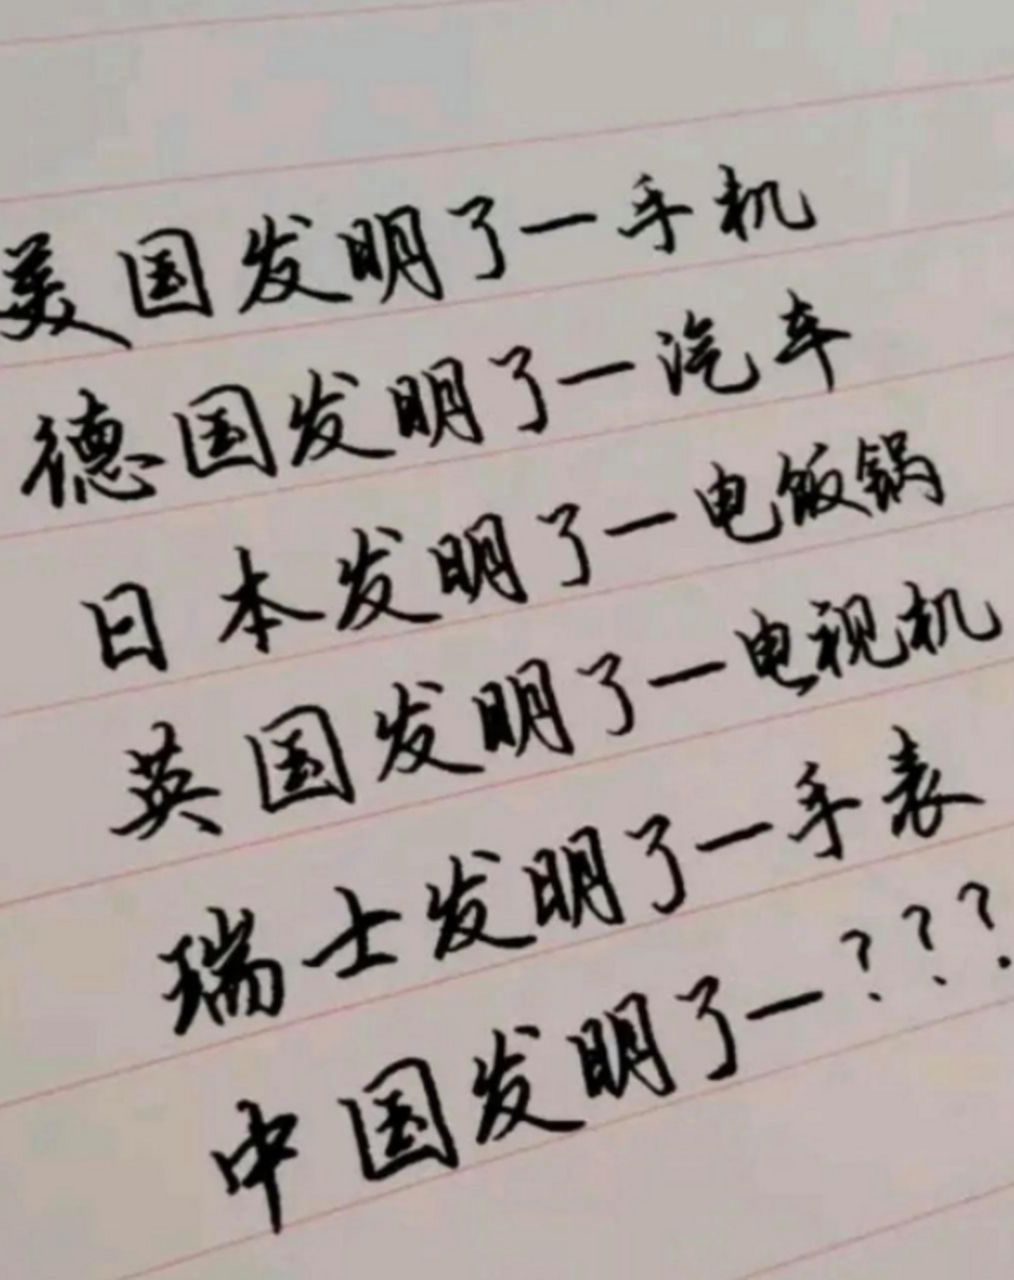 美国发明了一手机
德国发明了一汽车
日本发明了一电饭锅
英国发明了一电视机
瑞士发明了一手表
中国发明了一???